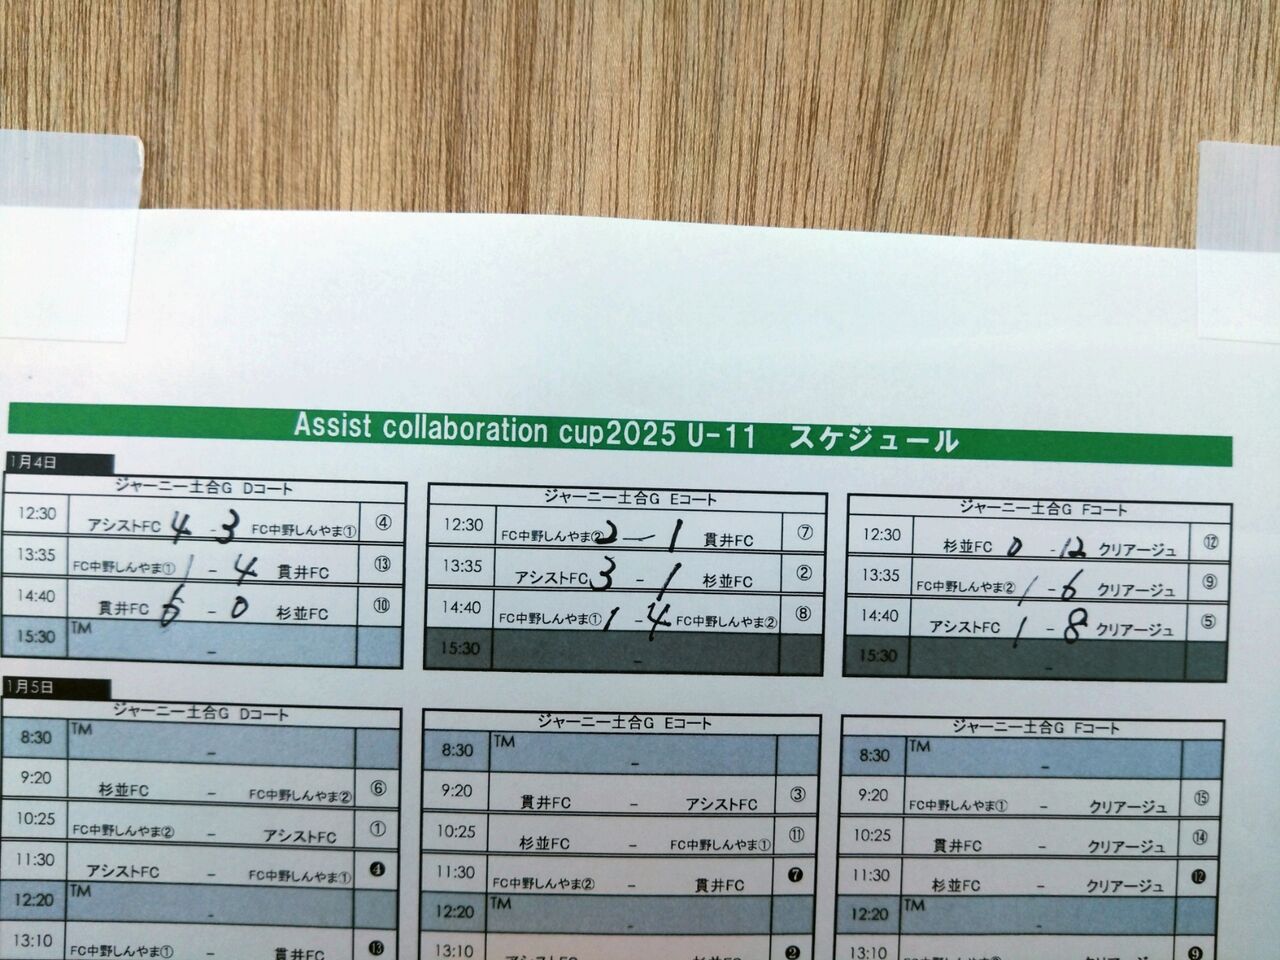 Assist collaboration cup2025 U-11　スケジュール
1月4日
ジャーニー土合G Dコート
12:30 アシストFC 4 - 3 FC中野しんやま① ④
13:35 FC中野しんやま① 1 - 4 貫井FC ⑬
14:40 貫井FC 6 - 0 杉並FC ⑩
15:30 TM -
ジャーニー土合G Eコート
12:30 FC中野しんやま② 2 - 1 貫井FC ⑦
13:35 アシストFC 3 - 1 杉並FC ②
14:40 FC中野しんやま① 1 - 4 FC中野しんやま② ⑧
15:30 -
ジャーニー土合G Fコート
12:30 杉並FC 0 - 12 クリアージュ ⑫
13:35 FC中野しんやま② 1 - 6 クリアージュ ⑨
14:40 アシストFC 1 - 8 クリアージュ ⑤
15:30 -
1月5日
ジャーニー土合G Dコート
8:30 TM -
9:20 杉並FC - FC中野しんやま② ⑥
10:25 FC中野しんやま② - アシストFC ①
11:30 アシストFC - FC中野しんやま① ❹
12:20 TM -
13:10 FC中野しんやま① - 貫井FC ⓭
ジャーニー土合G Eコート
8:30 TM -
9:20 貫井FC - アシストFC ③
10:25 杉並FC - FC中野しんやま① ⑪
11:30 FC中野しんやま② - 貫井FC ❼
12:20 TM -
13:10 アシストFC - 杉並FC ❷
ジャーニー土合G Fコート
8:30 TM -
9:20 FC中野しんやま① - クリアージュ ⑮
10:25 貫井FC - クリアージュ ⑭
11:30 杉並FC - クリアージュ ⓬
12:20 TM -
13:10 - クリアージュ ❾